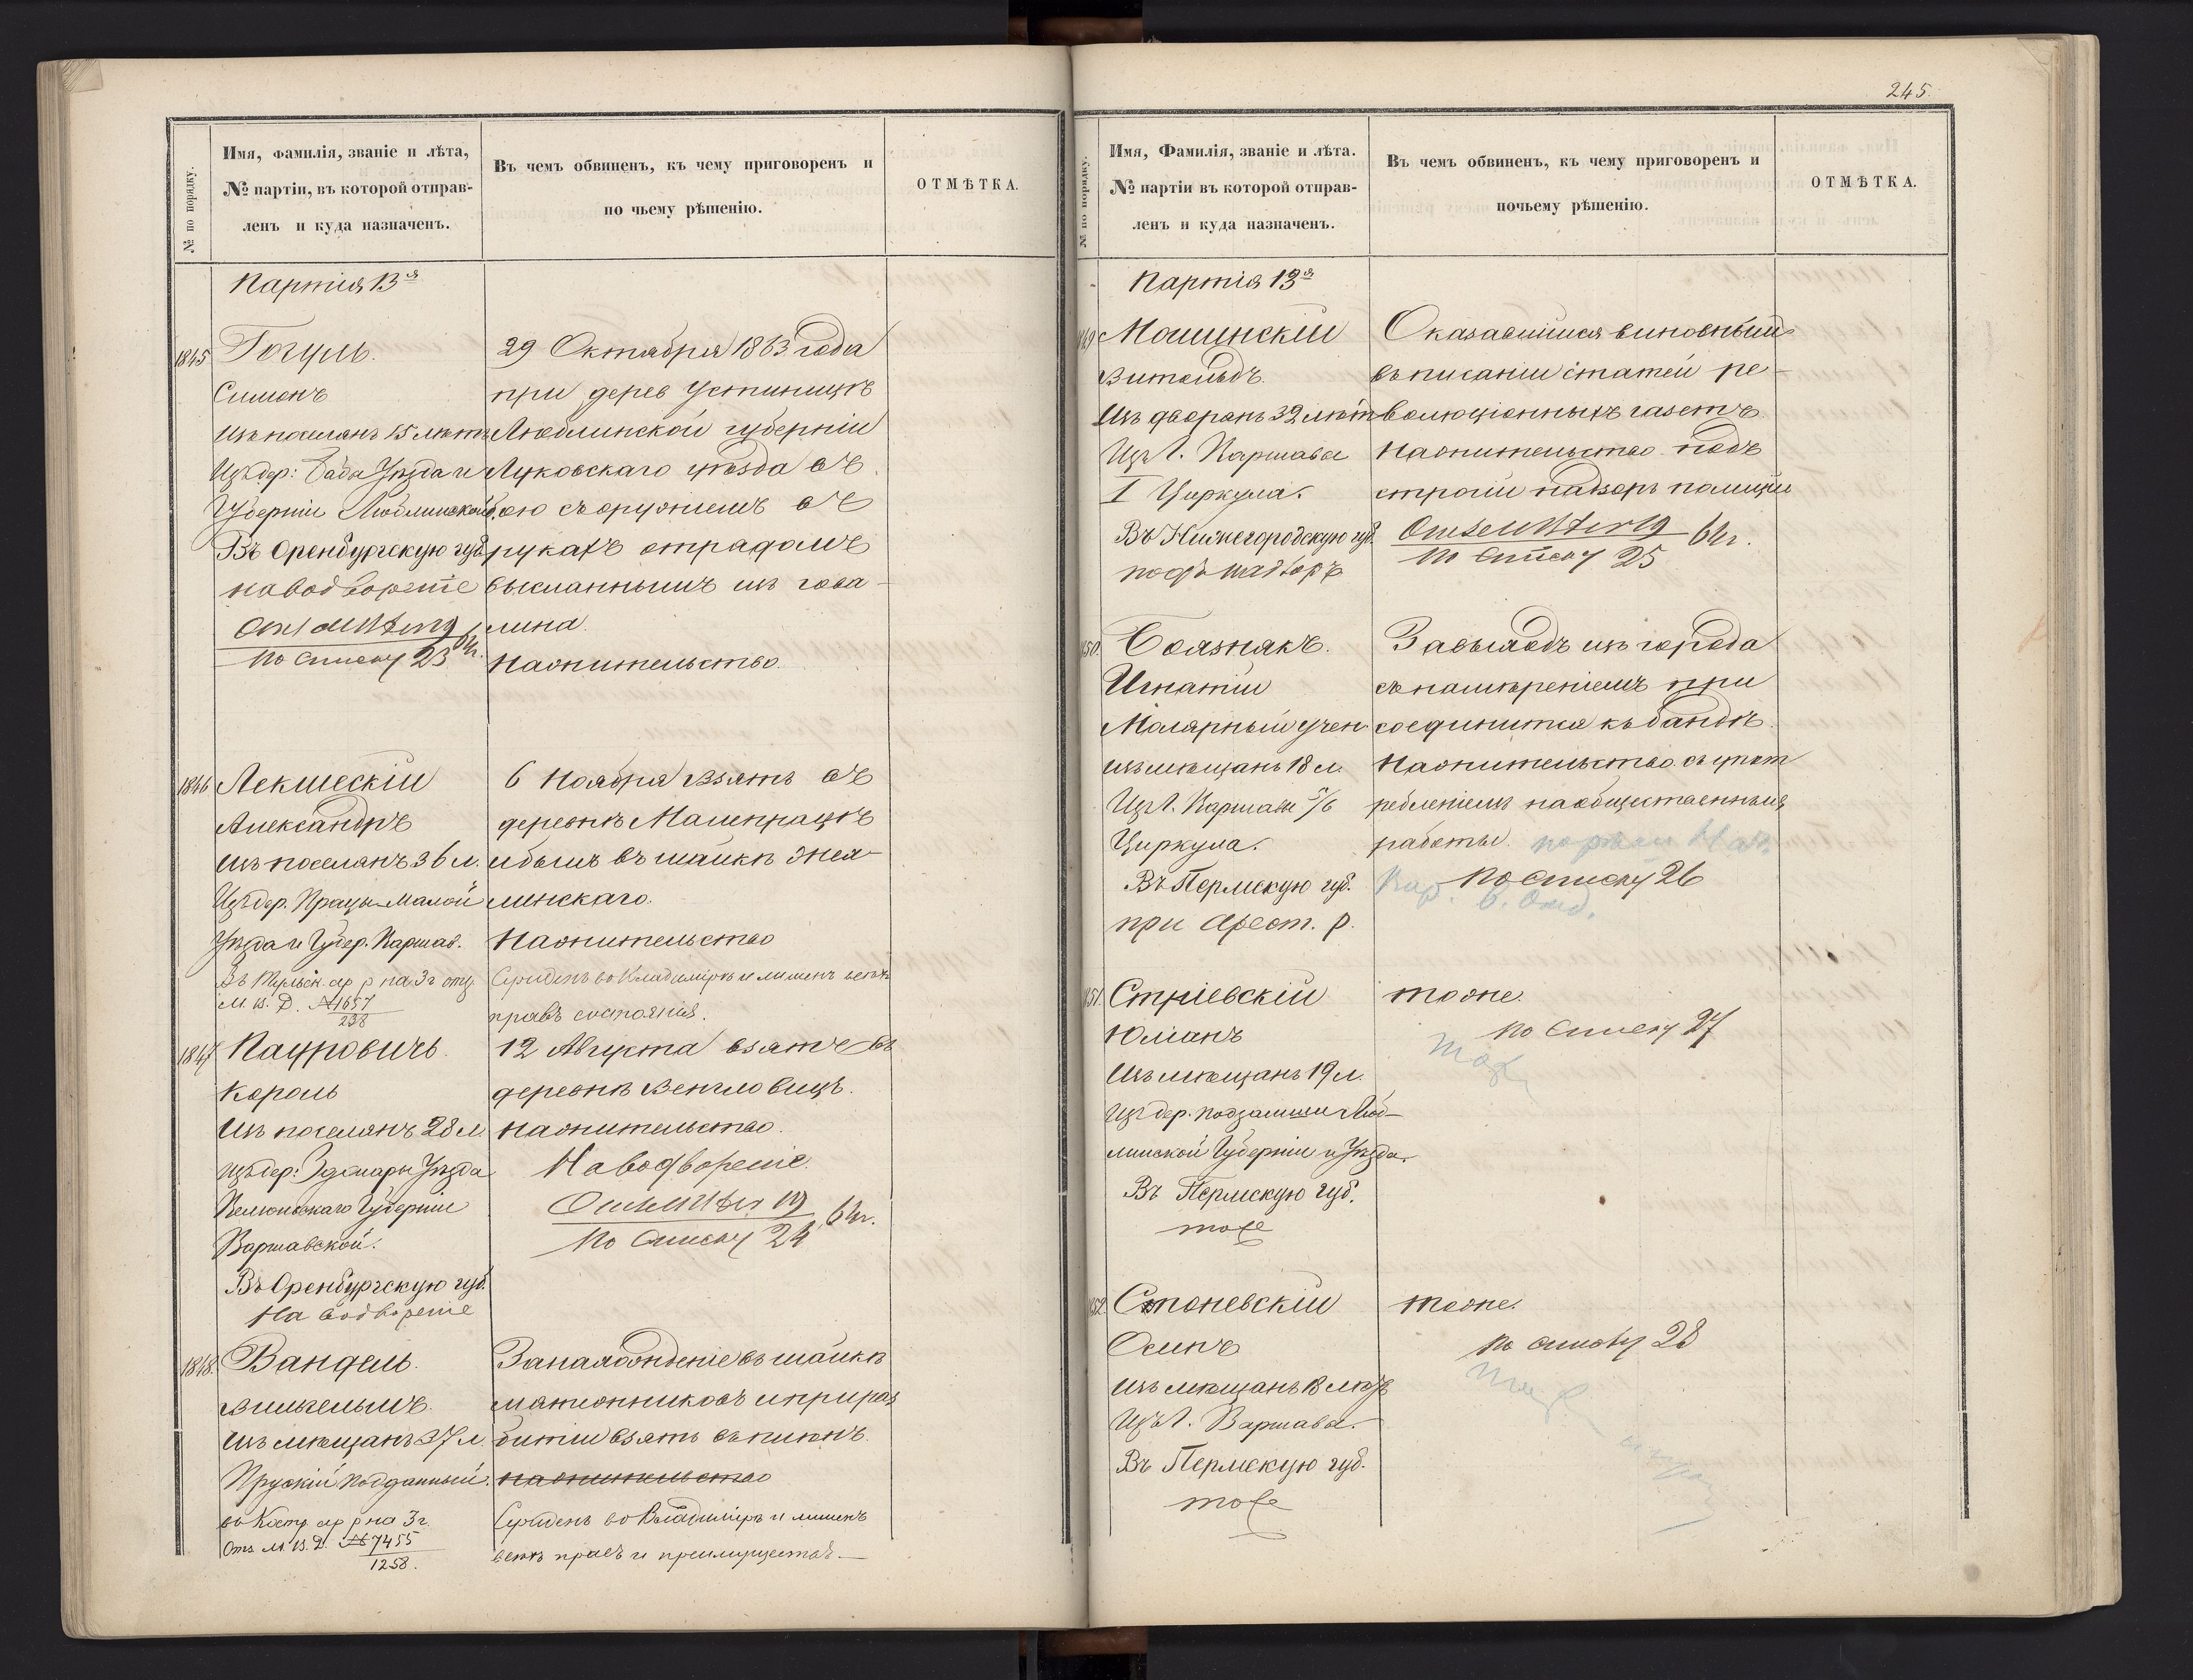 245.
№ по порядку.
Имя, фамилія, званіе и лѣта,
№ партіи, въ которой отправ-
ленъ и куда назначенъ.
Въ чемъ обвиненъ, къ чему приговоренъ и
по чьему рѣшенію.
ОТМѢТКА.
Партія 13я
1845
Гогуль.
Симонъ
Изъ поселянъ 15 лѣтъ
Изъ дер: Уѣзда и
Губерніи Люблинской.
Въ Оренбургскую губ.
на водвореніе
по списку 23
29 Октября 1863 года
при дерев Устиницкѣ
Люблинской губерніи
Луковскаго уѣзда въ
бою съ оружіемъ въ
рукахъ отрядомъ
высланнымъ изъ гова-
лина.
На жительство.
1846
Лекшескій
Александръ
Изъ поселянъ 36 л.
Изъ дер. Працы-Малой
Уѣзда и Губер. Варшав.
№ 1657
238
6 Ноября взятъ въ
деревнѣ Малепрацкѣ
и былъ въ шайкѣ Зея-
линскаго.
На жительство
Сужденъ во Владимірѣ и лишенъ всѣхъ
правъ состоянія.
1847
Кароль
Изъ поселянъ 28 л.
Изъ дер: Уѣзда
Губерніи
Варшавской.
Въ Оренбургскую губ.
На водвореніе
12 Августа взятъ въ
деревнѣ Венгловицѣ.
На жительство.
На водвореніе.
по списку 24
1848.
Вандель.
Вильгельмъ.
Изъ мѣщанъ 37 л.
Прускій подданный.
во Костр ар р на 3 г.
Отз М. В. Д. № 7455
1258.
За нахожденіе въ шайкѣ
мятежниковъ и при раз
битіи взятъ въ плѣнъ.
на жительство
Сужденъ во Владимірѣ и лишенъ
всѣхъ правъ и преимуществъ.—
№ по порядку.
Имя, Фамилія, званіе и лѣта.
№ партіи въ которой отправ-
ленъ и куда назначенъ.
Въ чемъ обвиненъ, къ чему приговоренъ и
почьему рѣшенію.
ОТМѢТКА.
Партія 13я
Мошинскій
Витольдъ.
Изъ дворянъ 32 лѣтъ
Изъ Г. Варшава
I Циркула.
Въ Нижегородскую губ.
подъ надзоръ
Оказавшійся виновный
въ писаніи статей ре-
волюціонныхъ газетъ.
На жительство подъ
строгій надзоръ полиціи
по списку 25
Болзнякъ.
Игнатій
Малярный учен.
Изъ мѣщанъ 18 л.
Изъ Г. Варшавы 5/6
Циркула.
Въ Пермскую губ.
при арест. р.
За выходъ изъ города
съ намѣреніемъ при
соединится къ бандѣ.
На жительство съ упот
ребленіемъ на общественныя
работы.
по списку 26
Стріевскій
Юліанъ
Изъ мѣщанъ 19 л.
Изъ дер. Подзамши Люб-
линской Губерніи и Уѣзда.
Въ Пермскую губ.
тоже
тоже.
по списку 27
Стоневскій
Осипъ
Изъ мѣщанъ 18 лѣтъ
Изъ Г. Варшавы.
Въ Пермскую губ.
тоже
тоже.
по списку 28